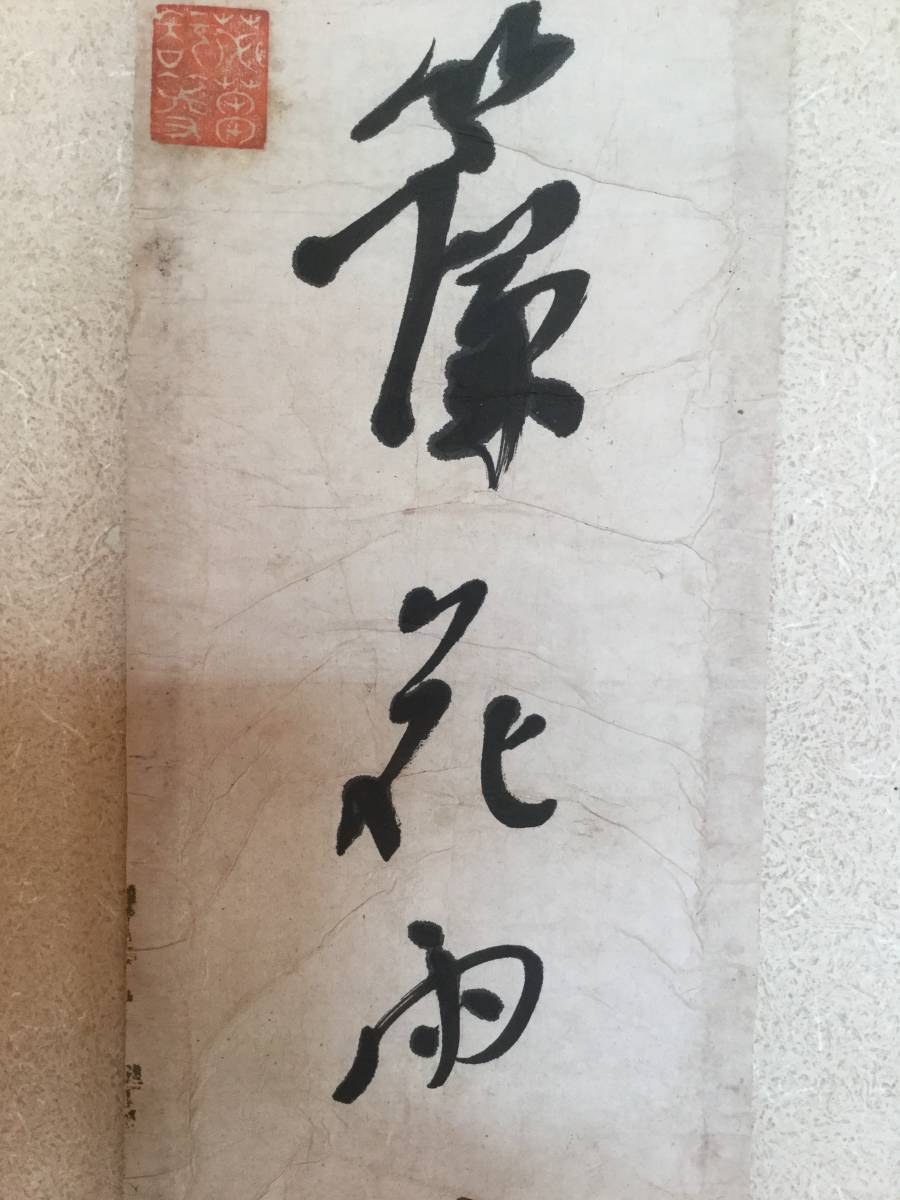 簾花雨